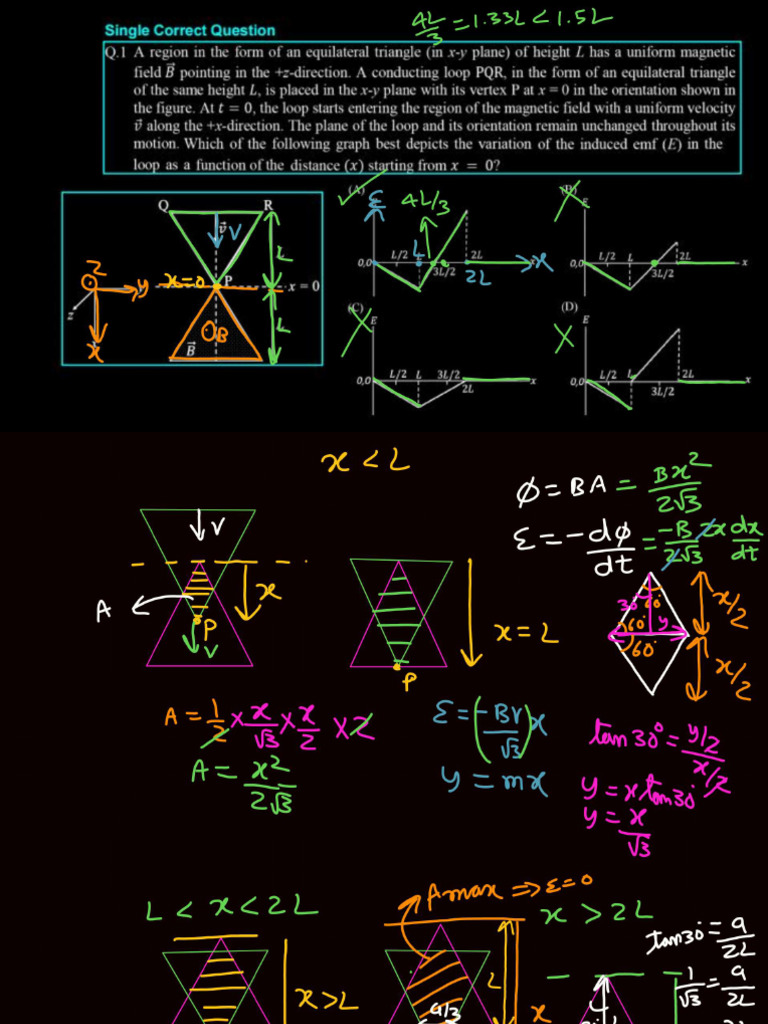 4L/3 = 1.33L < 1.5L
Single Correct Question
Q.1 A region in the form of an equilateral triangle (in x-y plane) of height L has a uniform magnetic
field B⃗ pointing in the +z-direction. A conducting loop PQR, in the form of an equilateral triangle
of the same height L, is placed in the x-y plane with its vertex P at x = 0 in the orientation shown in
the figure. At t = 0, the loop starts entering the region of the magnetic field with a uniform velocity
v⃗ along the +x-direction. The plane of the loop and its orientation remain unchanged throughout its
motion. Which of the following graph best depicts the variation of the induced emf (E) in the
loop as a function of the distance (x) starting from x = 0?
Q R
v⃗ V L
Z y x=0 P x = 0
B L
x B⃗
(A) ε 4L/3
L/2 L 2L
0,0 3L/2 2L x
(B) E
L/2 L 2L
0,0 3L/2 x
(C) E
L/2 L 3L/2
0,0 2L x
(D)
E
L/2 L 2L
0,0 3L/2 x
x < L
φ = BA = Bx²/2√3
ε = -dφ/dt = -B/2√3 2x dx/dt
V
A x
P
V
x = L
P
30° 60° x/2
60° y
60° x/2
A = 1/2 × x/√3 × x/2 × 2
A = x²/2√3
ε = (-BV/√3) x
y = mx
tan 30° = y/2 / x/2
y = x tan 30°
y = x/√3
L < x < 2L
Amax ⇒ ε = 0
x > 2L
tan 30° = a/2L
1/√3 = a/2L
x > L
L
x
a/3